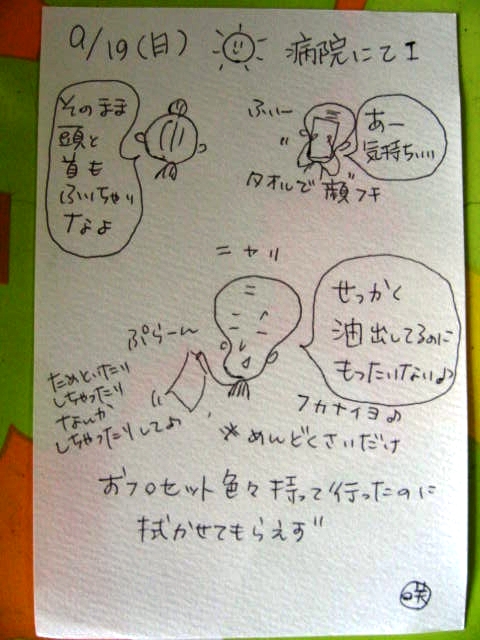 9/19(日) 病院にて I
そのまま
頭と
首も
ふいちゃい
なよ
ふぃー
あー
気持ちいい
タオルで"顔"フキ
ニヤリ
せっかく
油出してるのに
もったいない♪
ぷらーん
ためといたり
しちゃったり
なんか
しちゃったりして♪
フカナイヨ♪
※めんどくさいだけ
おフロセット色々持って行ったのに
拭かせてもらえず"
咲